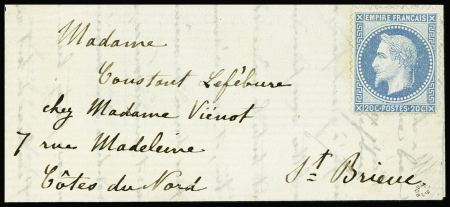 EMPIRE FRANCAIS
20C-POSTES-20C
Madame
Constant Lefébure
chez Madame Viénot
7 rue Madeleine
Côtes du Nord
St. Brieuc